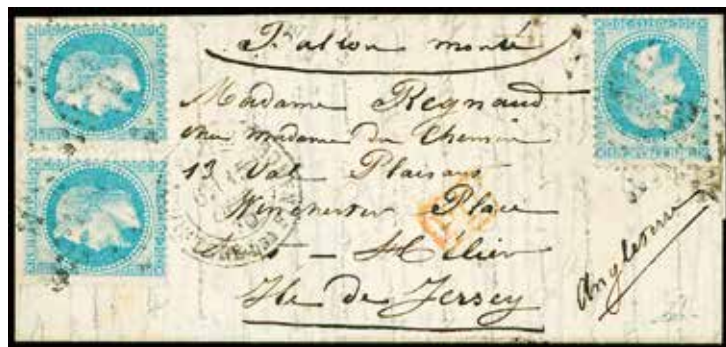 Ballon monté
Madame Regnaud
chez madame du Chemin
13 Val Plaisant
Winchester Place
St - Hélier
Ile de Jersey
Angleterre